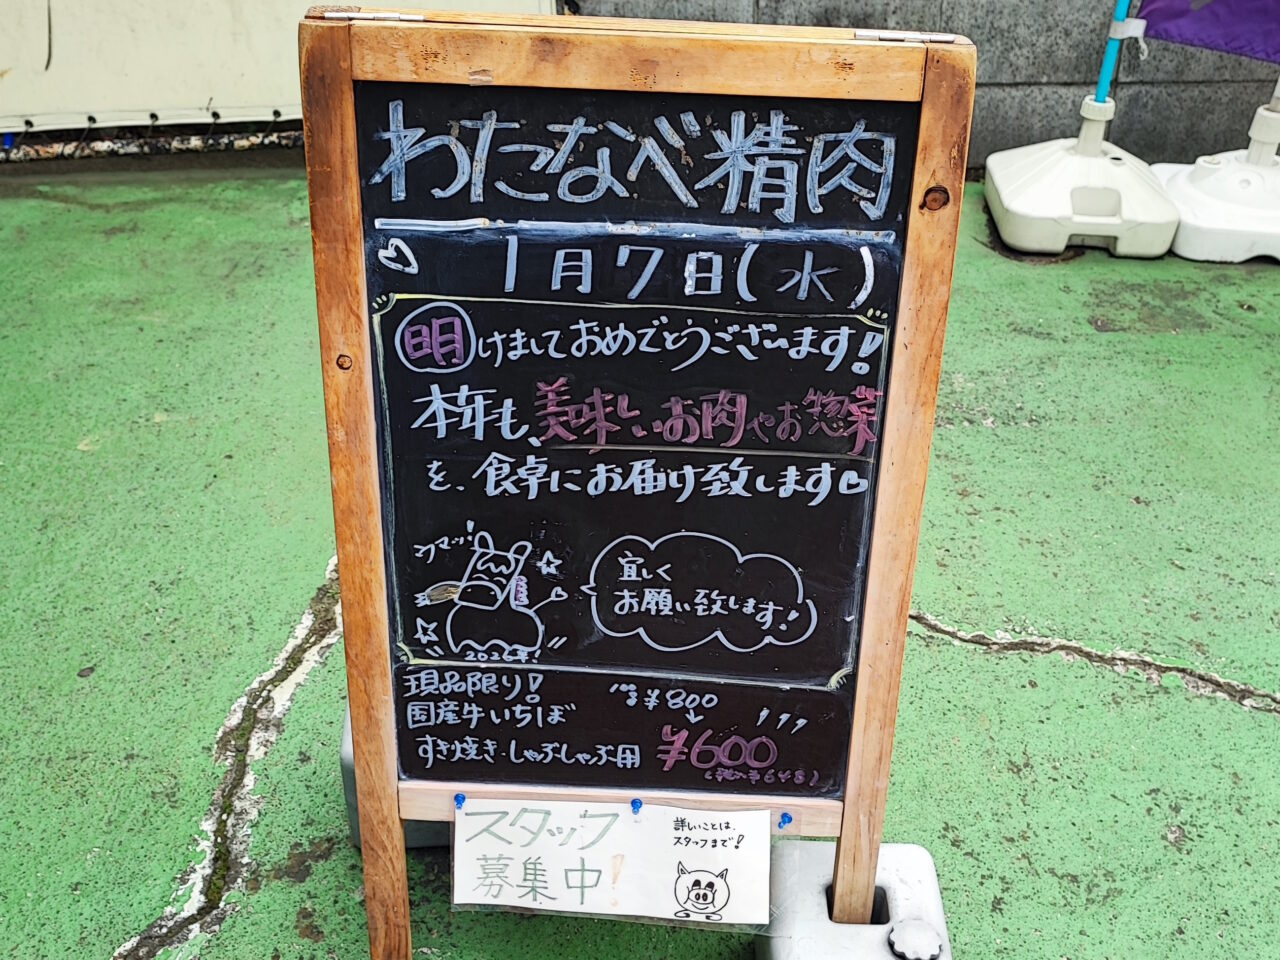 わたなべ精肉
1月7日(水)
明けましておめでとうございます!
本年も、美味しいお肉やお惣菜
を、食卓にお届け致します
ウマッ!
宜しく
お願い致します!
2026年!
現品限り!
国産牛いちぼ
¥800
↓
すき焼き・しゃぶしゃぶ用 ¥600
(税込¥648)
スタッフ
募集中!
詳しいことは、
スタッフまで!